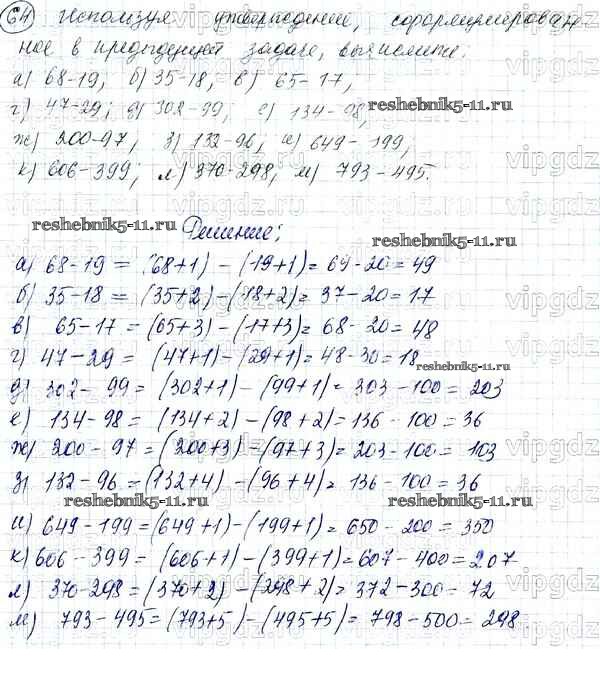 64 Используя утверждение, сформулирован-
ное в предыдущей задаче, вычислите:
а) 68-19; б) 35-18; в) 65-17;
г) 47-29; д) 302-99; е) 134-98;
reshebnik5-11.ru
ж) 200-97; з) 132-96; и) 649-199;
к) 606-399; л) 370-298; м) 793-495.
reshebnik5-11.ru
Решение:
а) 68-19 = (68+1) - (19+1) = 69-20 = 49
б) 35-18 = (35+2) - (18+2) = 37-20 = 17
в) 65-17 = (65+3) - (17+3) = 68-20 = 48
г) 47-29 = (47+1) - (29+1) = 48-30 = 18
reshebnik5-11.ru
д) 302-99 = (302+1) - (99+1) = 303-100 = 203
е) 134-98 = (134+2) - (98+2) = 136-100 = 36
ж) 200-97 = (200+3) - (97+3) = 203-100 = 103
з) 132-96 = (132+4) - (96+4) = 136-100 = 36
reshebnik5-11.ru
reshebnik5-11.ru
и) 649-199 = (649+1) - (199+1) = 650-200 = 350
к) 606-399 = (606+1) - (399+1) = 607-400 = 207
л) 370-298 = (370+2) - (298+2) = 372-300 = 72
м) 793-495 = (793+5) - (495+5) = 798-500 = 298.